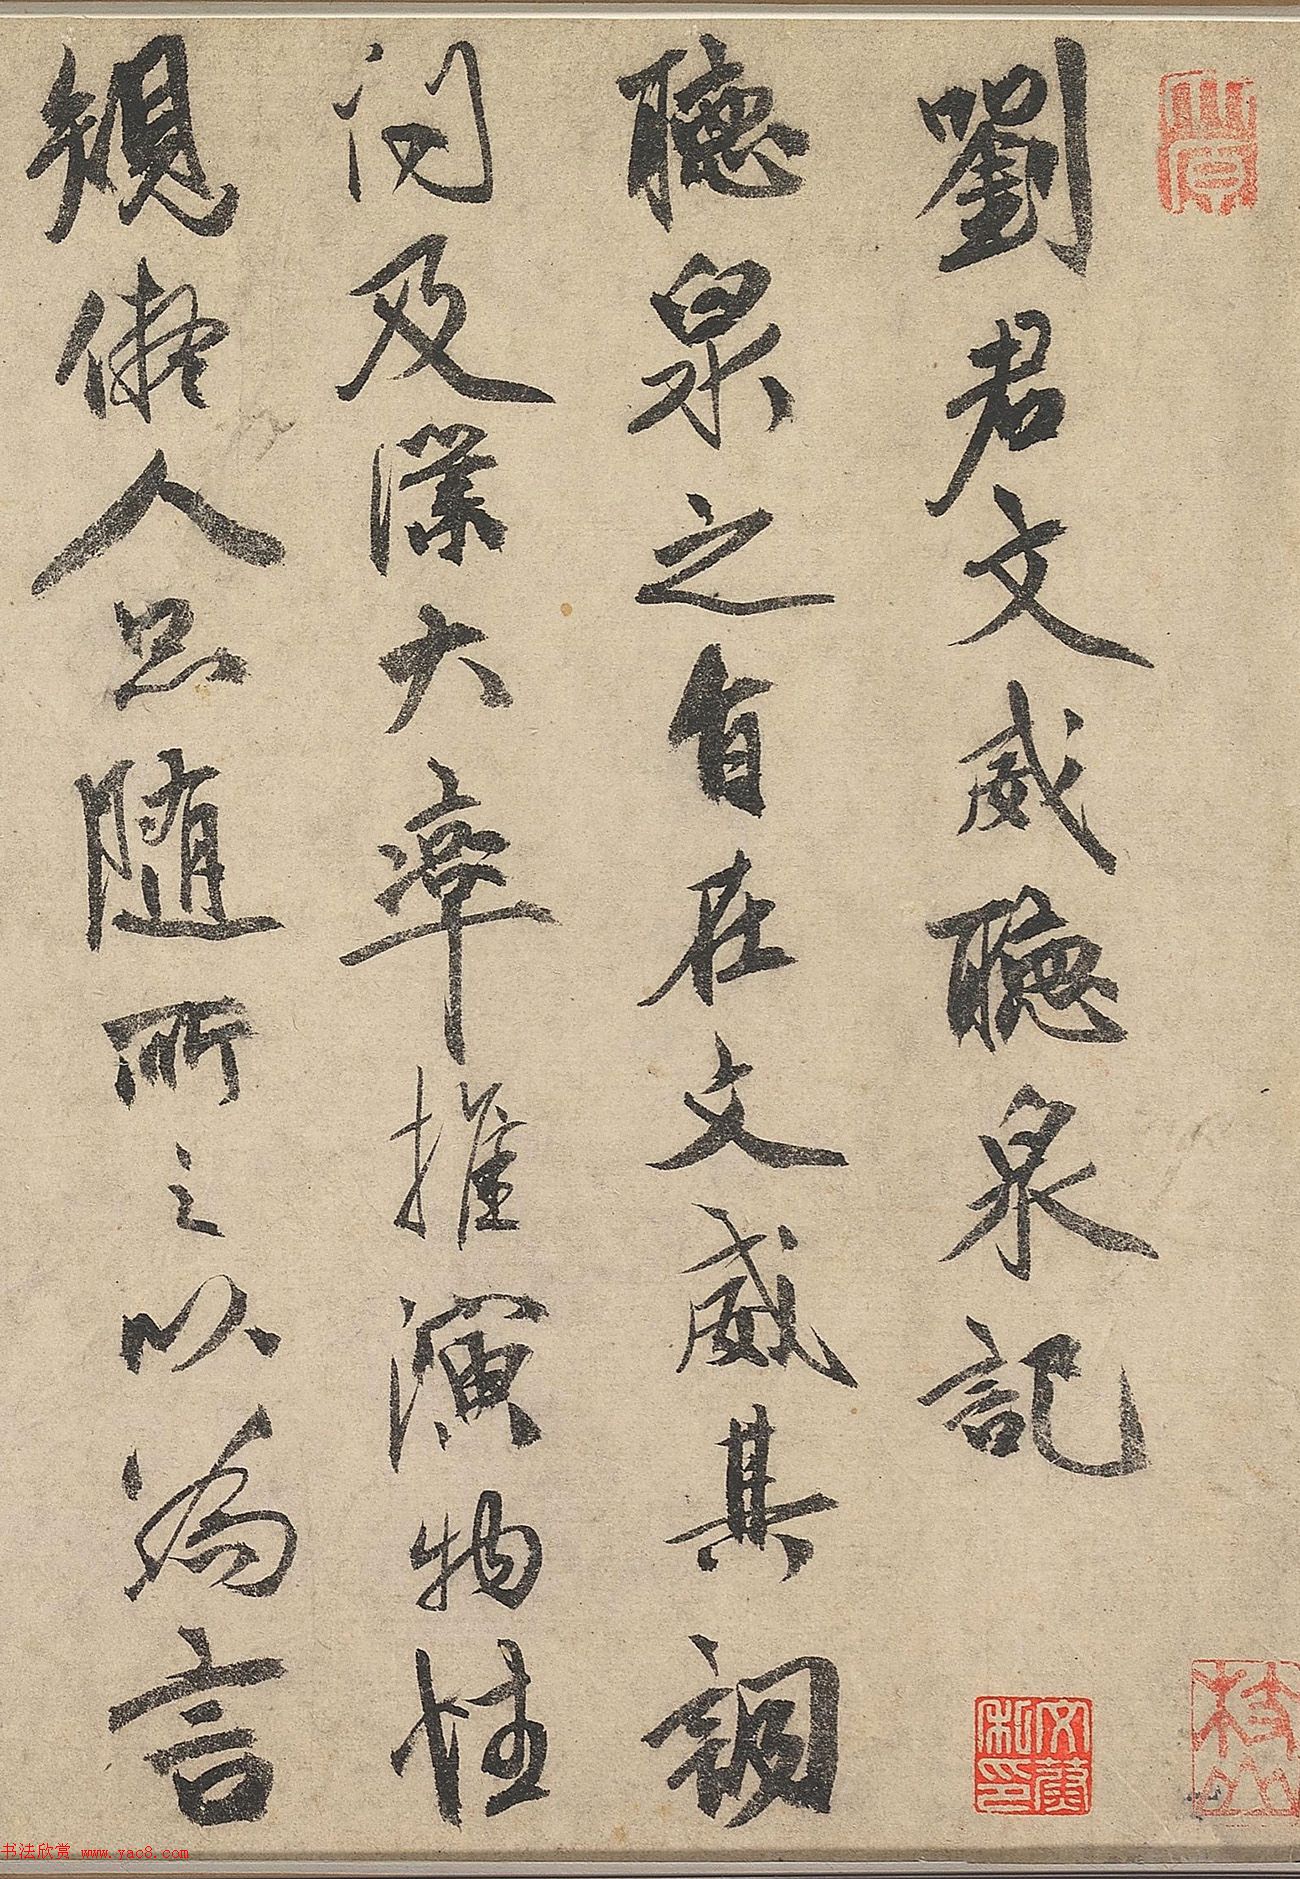 劉君文威聽泉記
聽泉之在文威其
及大率推演物性
規儗人品隨所之以為言
书法欣赏 www.yac8.com